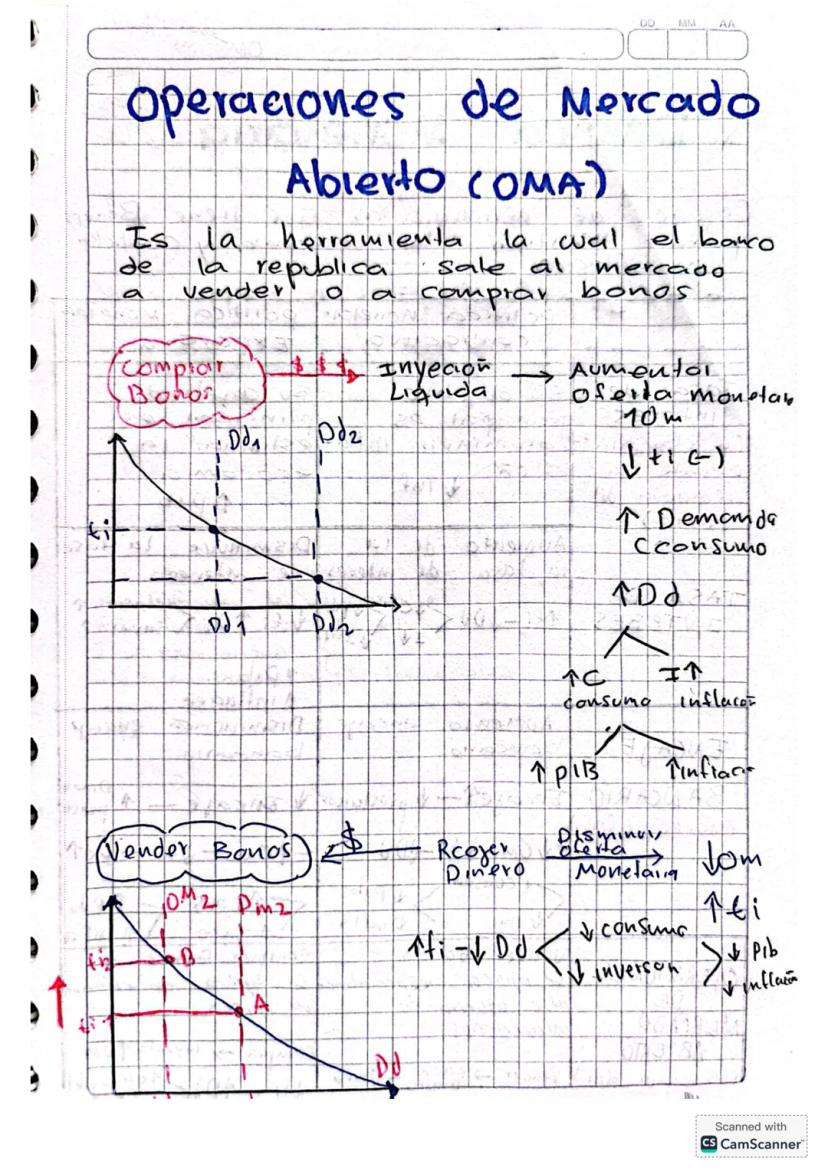 DD MM AA
Operaciones de Mercado
Abierto (OMA)
Es la herramienta la cual el banco
de la republica sale al mercado
a vender o a comprar bonos
Comprar
Bonos
$ $ $
Inyeción
Liquida
Aumentar
oferta monetar
↓ ti (-)
↑ Demanda
Cconsumo
↑Dd
↑C
consumo
I↑
inflación
↑ PIB
↑inflac
Dd1 Dd2
ti
Dd1 Dd2
Vender Bonos
$
Rcoger
Dinero
Disminuir
oferta
Monetaria
↓om
↑ti
↑ti-↓Dd
↓ consumo
↓ inverson
↓ Pib
↓ inflación
OM2 Dm2
ti2
B
ti
A
Dd
Scanned with
CS CamScanner